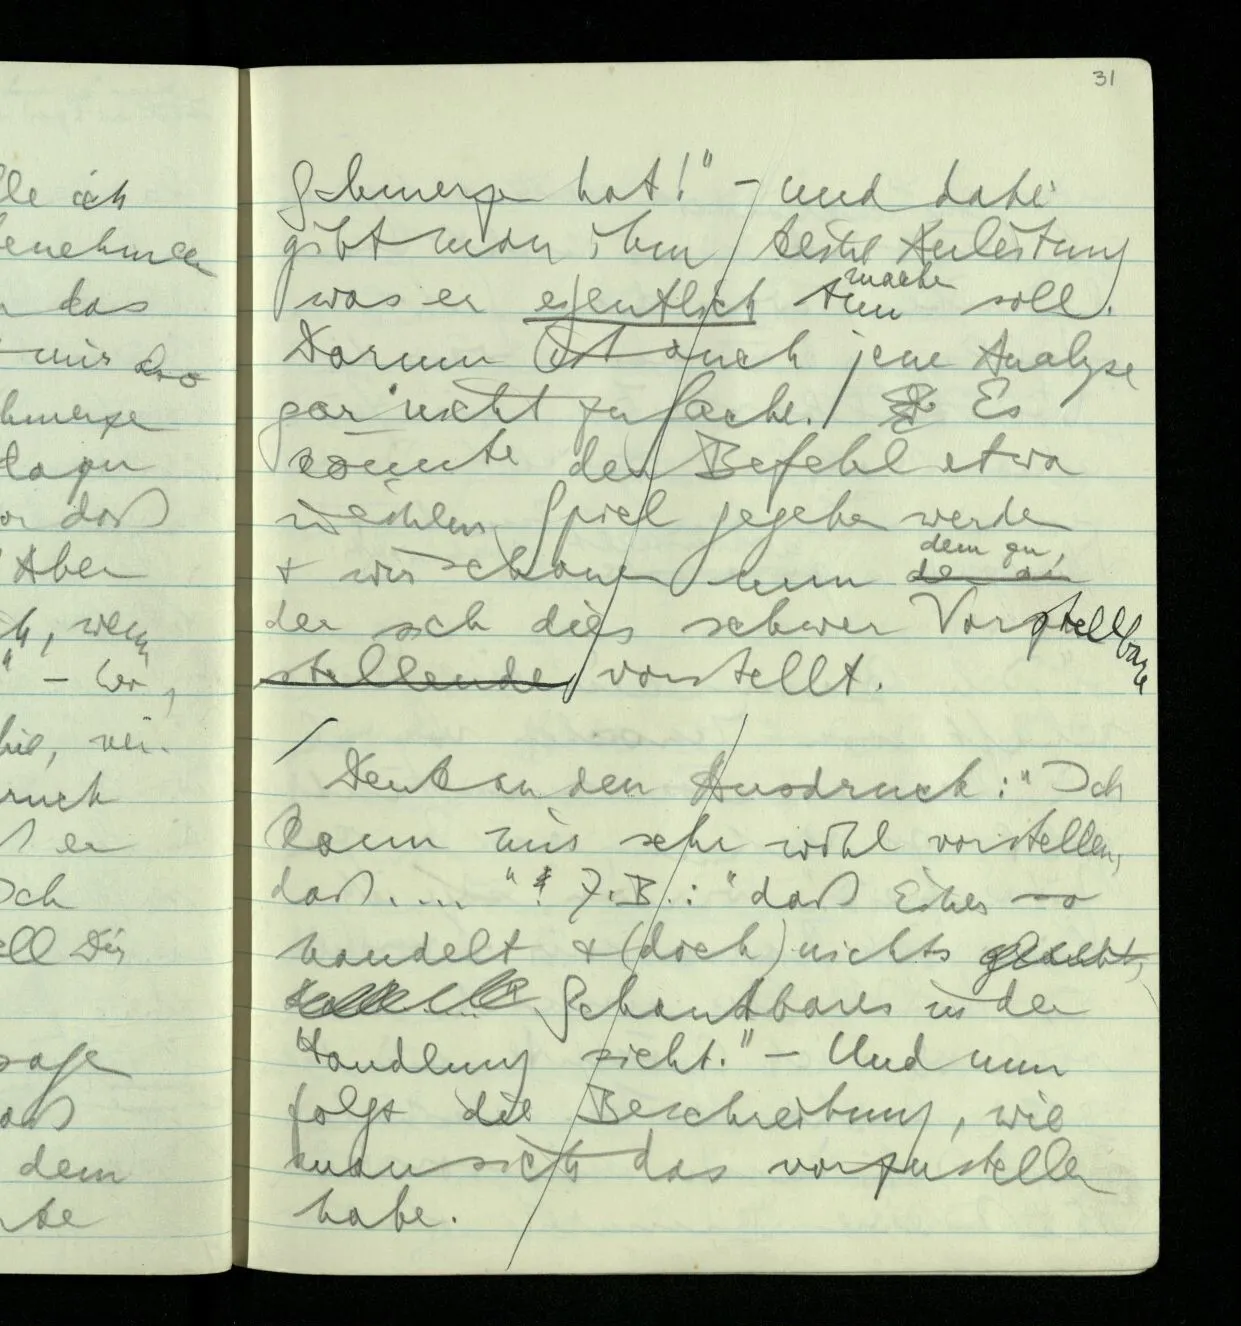 31
Schmerzen hat!" – und dabei
gibt man ihm keine Anleitung
was er eigentlich tun mache soll.
Darum ist auch jene Analyse
gar nicht zur Sache. / Es
könnte der Befehl etwa
in einem Spiel gegeben werden
+ wir schauen nun dem zu,
der sich dies schwer Vorstellbare
stellende vorstellt.
/ Denk an den Ausdruck: "Ich
kann mir sehr wohl vorstellen,
daß .... "! Z.B.: "daß Einer so
handelt + (doch) nichts
Schandbares in der
Handlung sieht." – Und nun
folgt die Beschreibung, wie
man sich das vorzustellen
habe.
ich
benehmen
das
mir
Schmerzen
dazu
daß
Aber
wenn
er
Ich
Dir
sage
dem